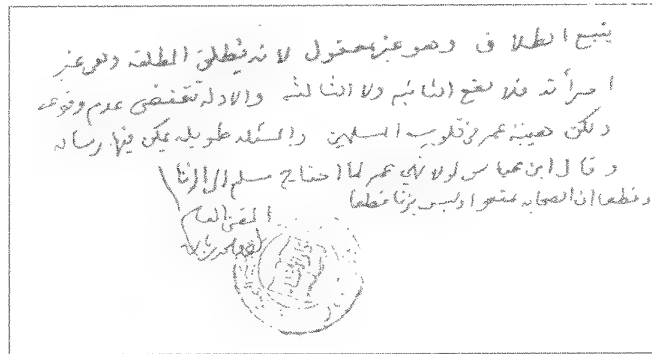 يتبع الطلاق وهو غير معقول لانه يطلق المطلقة وهي غير
امرأته فلا تقع الثانيه ولا الثالثه والادلة تقتضي عدم وقوعه
ولكن هيبة عمر في قلوب المسلمين والمسئله طويله يمكن فيها رساله
وقال ابن عباس لولا نهي عمر لما احتاج مسلم الى الزنا
وقطعا ان الصحابه تمتعوا وليس بزنا قطعا
المفتي العام